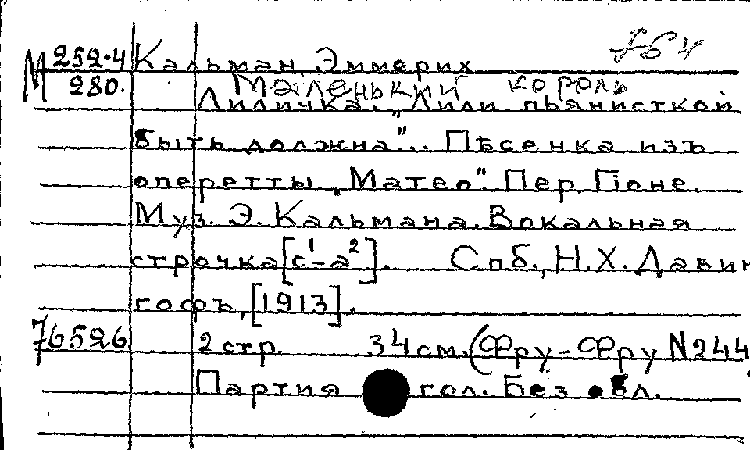 М 252·4 Кальман Эммерих 764
280. Маленький король
Лиличка. „Лили пьянисткой
быть должна"... Пѣсенка изъ
оперетты „Матео". Пер. Гюне.
Муз. Э. Кальмана. Вокальная
строчка [c¹–a²]. Спб., Н. Х. Давин
гофъ, [1913].
76526 2 стр. 34 см. (Фру-Фру N244
Партия гол. Без обл.